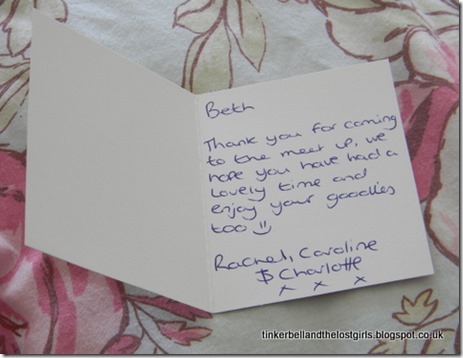 Beth
Thank you for coming
to the meet up, we
hope you have had a
lovely time and
enjoy your goodies
too :)
Rachel, Caroline
& Charlotte
x x x
tinkerbellandthelostgirls.blogspot.co.uk